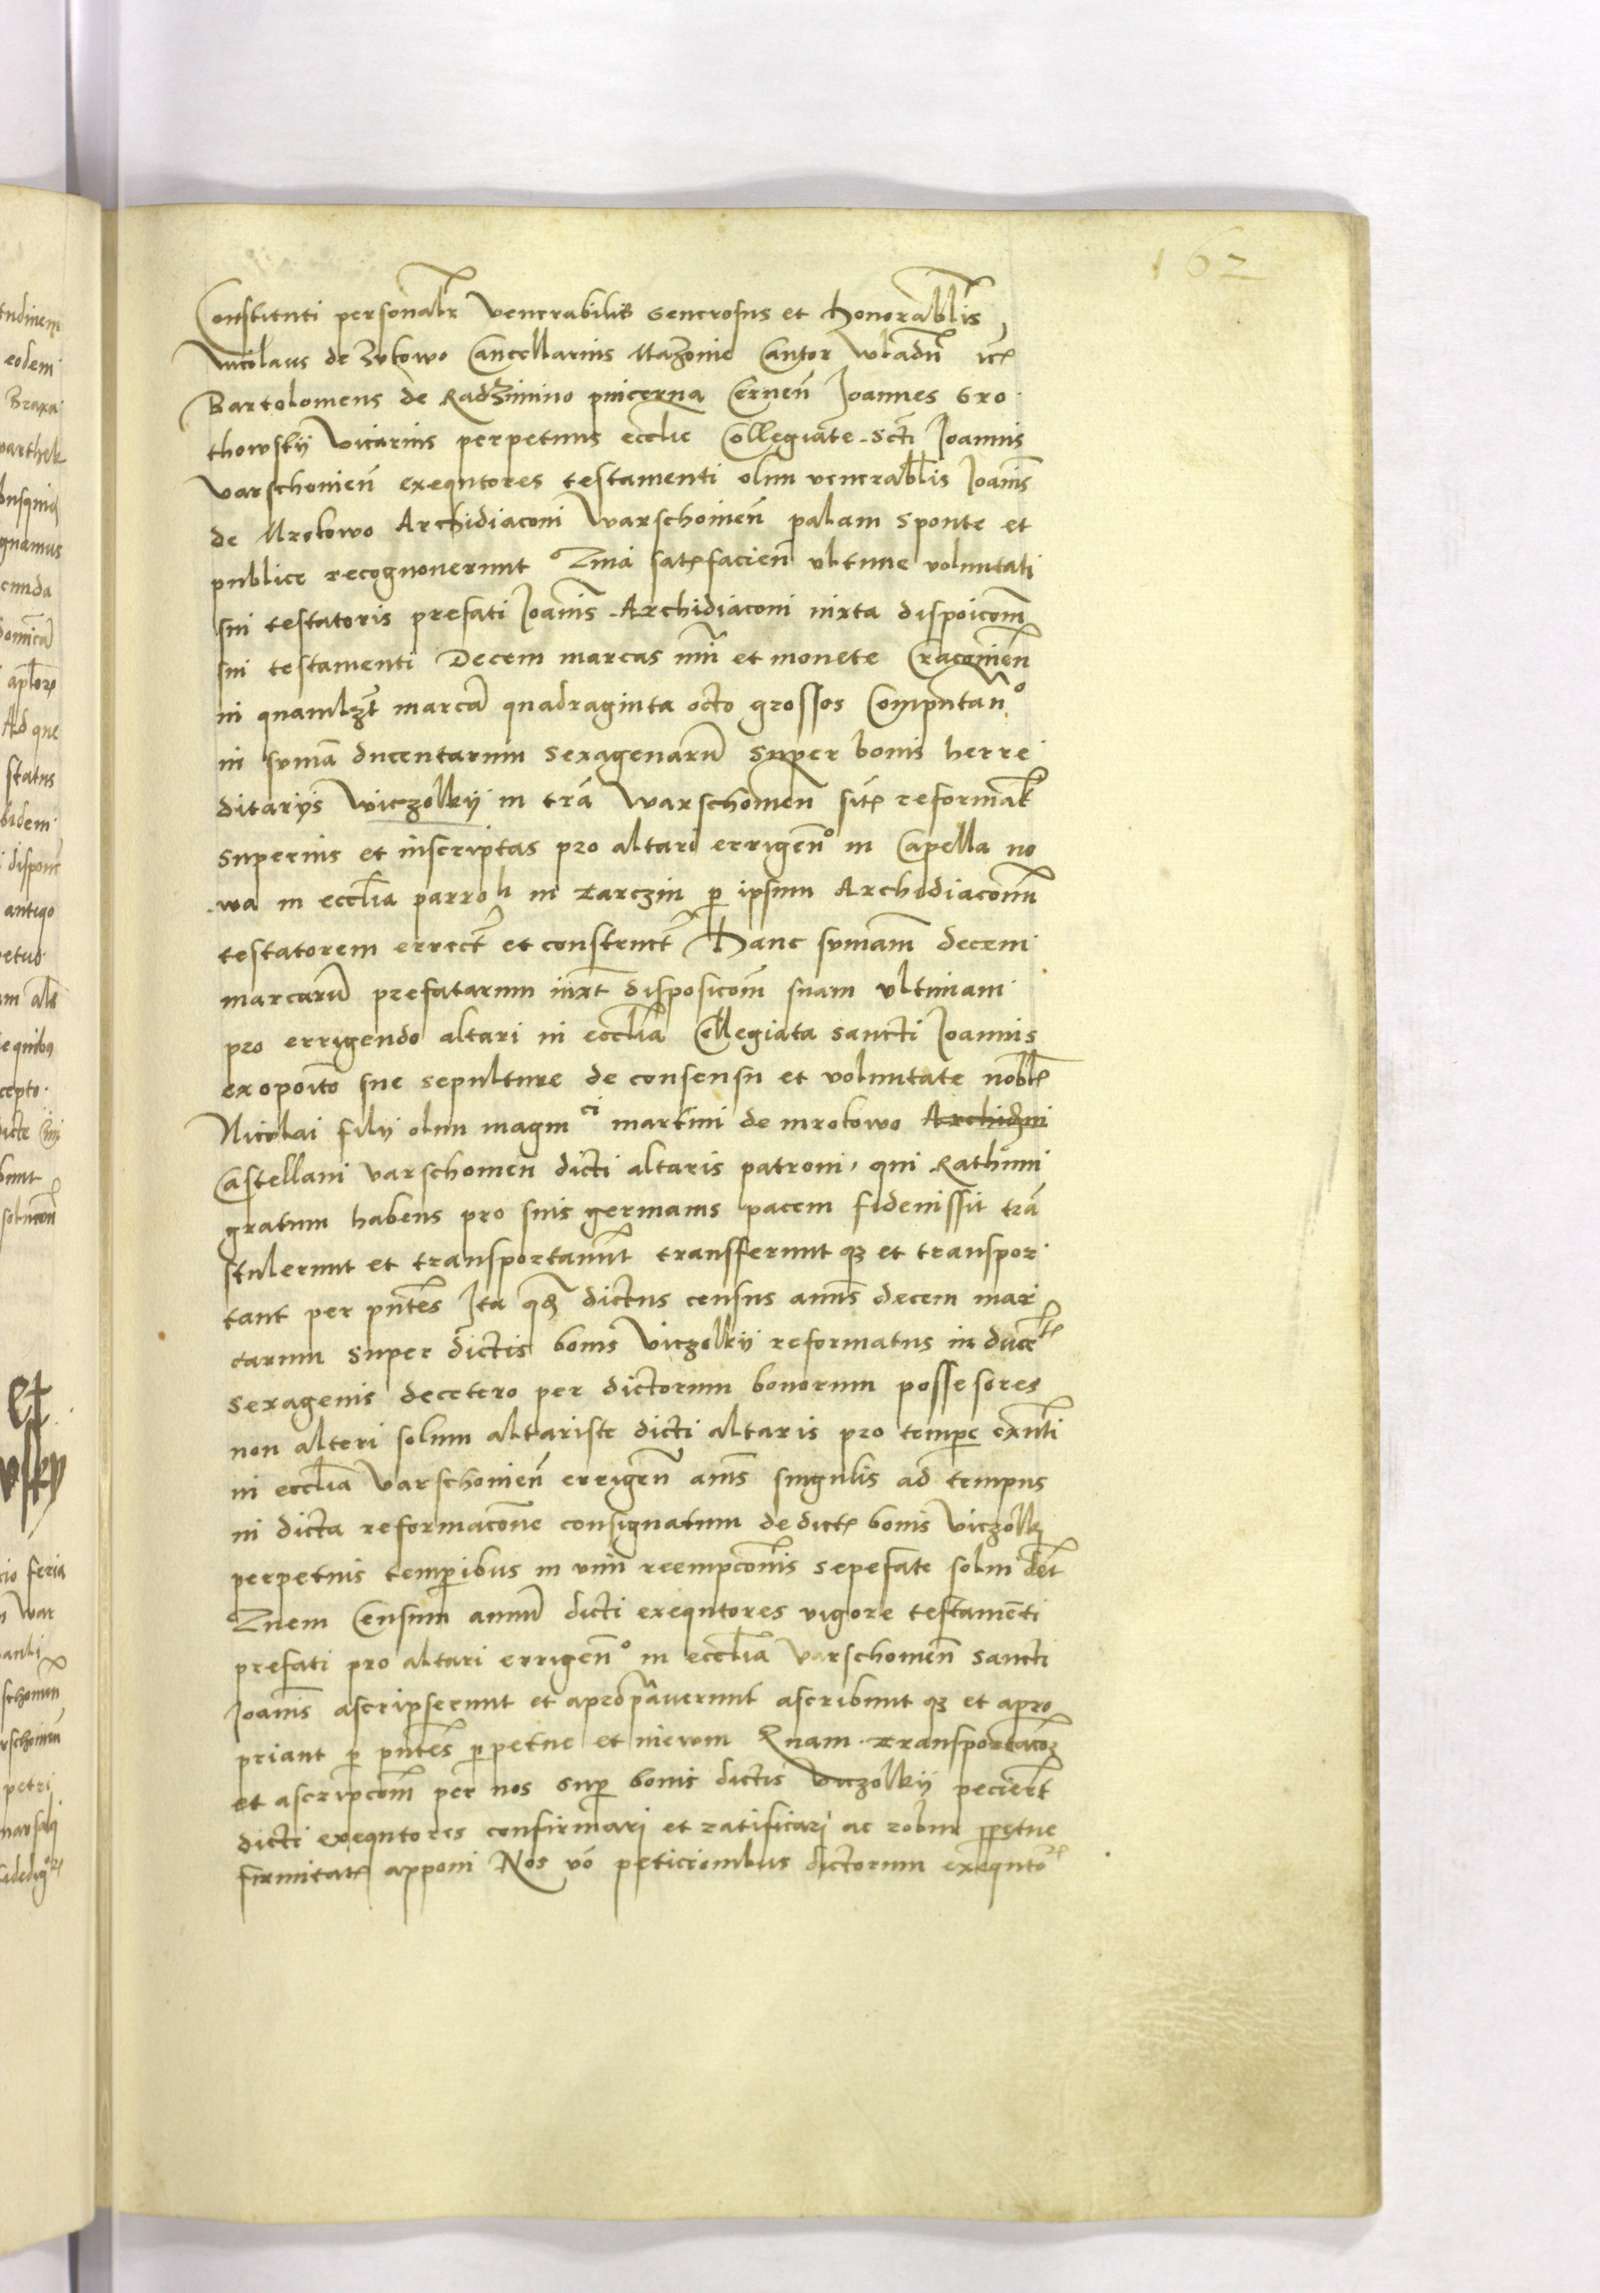 162
Constituti personalr venerabilis Generosus et honorabllis
Nicolaus de Zukowo Cancellarius Mazouie Cantor wladn
Bartolomeus de Radzimino pincerna Cernen Joannes Gro
thowskÿ Vicarius perpetuus ecclie Collegiate Scti Joannis
varschouien exequtores testamenti olim venerablis Joanis
de Mrokowo Archidiaconi Warschouien palam sponte et
publice recognouerunt Quia satisfacien vltime voluntati
sui testatoris prefati Joanis Archidiaconi iuxta dispoicom
sui testamenti Decem marcas nui et monete Cracouien
in quamlzt marca quadraginta octo grossos Computan°
in suma ducentarum sexagenaru super bonis herre
ditarÿs Viczolkÿ in tra Warschouien sit reformat
superius et inscriptas pro altari errigen° in Capella no
wa in ecclia parroh in Tarczin p ipsum Archidiaconu
testatorem errect et construct Hanc sumam decem
marcaru prefatarum iuxt disposicom suam vltimam
pro errigendo altari in ecclia Collegiata sancti Joannis
exopoito sue sepulture de consensu et voluntate nobl
Nicolai filÿ olim magnici martini de mrokowo Archidni
Castellani varschouien dicti altaris patroni, qui Rathum
gratum habens pro suis germanis pacem fideiussit tra
stulerunt et transportauert transfferunt qz et transpor
tant per pntes Ita qd dictus census anus decem mar
carum super dictis bonis Viczolkÿ reformatus in ducetis
sexagenis decetero per dictorum bonorum possesores
non alteri solum altariste dicti altaris pro tempe exnti
in ecclia Varschouien errigen anis singulis ad tempus
in dicta reformacone consignatum de dict bonis Viczolkÿ
perpetuis temporibus in vim reempconis sepefate solui det
Quem Censum annuu dicti exequtores vigore testamenti
prefati pro altari errigen° in ecclia Varschouien sancti
Joanis ascripserunt et apropauerunt ascribunt qz et apro
priant p pntes ppetue et in ewm Quam transportacoz
et ascripcom per nos sup bonis dictis Viczolkÿ pecieret
dicti exequtores confirmari et ratificari ac robur ppetue
firmitatis apponi Nos vo peticionibus dictorum exequto